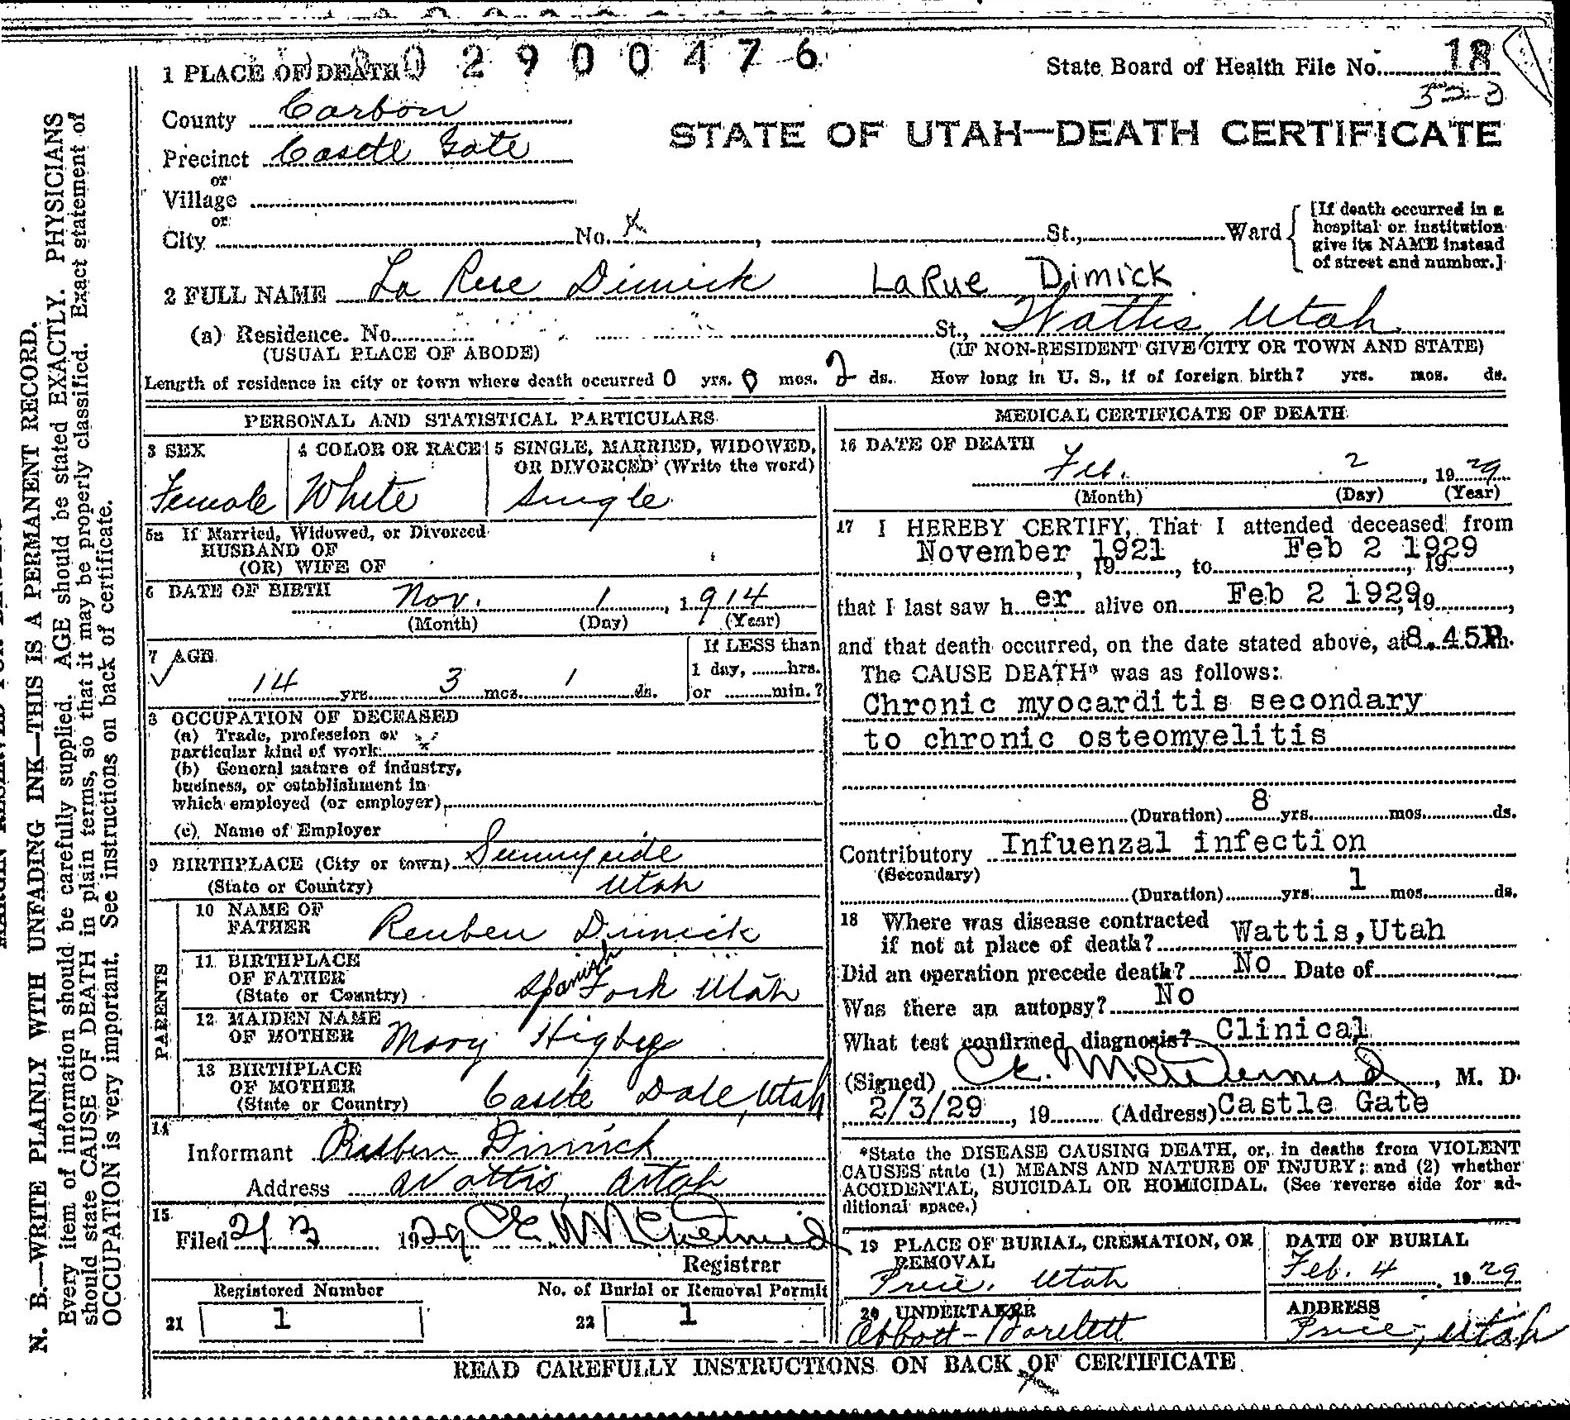 2900476
1 PLACE OF DEATH
State Board of Health File No. 18
County Carbon
STATE OF UTAH—DEATH CERTIFICATE
Precinct Castle Gate
or
Village
or
City No. X , St., Ward
[If death occurred in a
hospital or institution
give its NAME instead
of street and number.]
2 FULL NAME La Rue Dimick LaRue Dimick
(a) Residence. No. St., Wattis, Utah
(USUAL PLACE OF ABODE) (IF NON-RESIDENT GIVE CITY OR TOWN AND STATE)
Length of residence in city or town where death occurred 0 yrs. 0 mos. 2 ds. How long in U. S., if of foreign birth? yrs. mos. ds.
PERSONAL AND STATISTICAL PARTICULARS
3 SEX
Female
4 COLOR OR RACE
White
5 SINGLE, MARRIED, WIDOWED,
OR DIVORCED (Write the word)
Single
5a If Married, Widowed, or Divorced
HUSBAND OF
(OR) WIFE OF
6 DATE OF BIRTH Nov. 1, 1914
(Month) (Day) (Year)
7 AGE
14 yrs. 3 mos. 1 ds.
If LESS than
1 day, hrs.
or min.?
8 OCCUPATION OF DECEASED
(a) Trade, profession or
particular kind of work x
(b) General nature of industry,
business, or establishment in
which employed (or employer)
(c) Name of Employer
9 BIRTHPLACE (City or town) Sunnyside
(State or Country) Utah
PARENTS
10 NAME OF
FATHER Reuben Dimick
11 BIRTHPLACE
OF FATHER
(State or Country) Spanish Fork Utah
12 MAIDEN NAME
OF MOTHER Mary Higbee
13 BIRTHPLACE
OF MOTHER
(State or Country) Castle Dale, Utah
14
Informant Reuben Dimick
Address Wattis, Utah
15
Filed 2/3 1929 C. E. McDermid
Registrar
Registered Number
21 1
No. of Burial or Removal Permit
22 1
MEDICAL CERTIFICATE OF DEATH
16 DATE OF DEATH
Feb. 2, 1929
(Month) (Day) (Year)
17 I HEREBY CERTIFY, That I attended deceased from
November 1921, 19, to Feb 2 1929, 19,
that I last saw her alive on Feb 2 1929, 19,
and that death occurred, on the date stated above, at 8.45P.m.
The CAUSE DEATH* was as follows:
Chronic myocarditis secondary
to chronic osteomyelitis
(Duration) 8 yrs. mos. ds.
Contributory Infuenzal infection
(Secondary)
(Duration) yrs. 1 mos. ds.
18 Where was disease contracted
if not at place of death? Wattis,Utah
Did an operation precede death? No Date of
Was there an autopsy? No
What test confirmed diagnosis? Clinical
(Signed) C. E. McDermid, M. D.
2/3/29, 19 (Address) Castle Gate
*State the DISEASE CAUSING DEATH, or, in deaths from VIOLENT
CAUSES state (1) MEANS AND NATURE OF INJURY; and (2) whether
ACCIDENTAL, SUICIDAL OR HOMICIDAL. (See reverse side for ad-
ditional space.)
19 PLACE OF BURIAL, CREMATION, OR
REMOVAL
Price, Utah
DATE OF BURIAL
Feb. 4, 1929
20 UNDERTAKER
Abbott-Bartlett
ADDRESS
Price, Utah
READ CAREFULLY INSTRUCTIONS ON BACK OF CERTIFICATE.
N. B.—WRITE PLAINLY WTH UNFADING INK—THIS IS A PERMANENT RECORD.
Every item of information should be carefully supplied. AGE should be stated EXACTLY. PHYSICIANS
should state CAUSE OF DEATH in plain terms, so that it may be properly classified. Exact statement of
OCCUPATION is very important. See instructions on back of certificate.